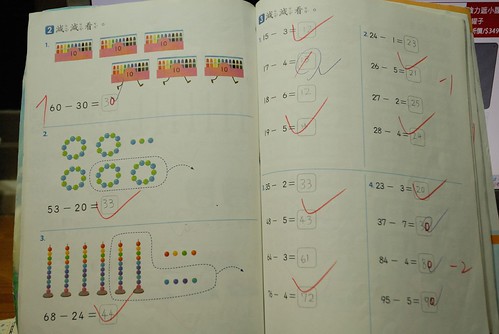 2 減減看。
1.
10 10 10
10 10 10
60 - 30 = 30
2.
53 - 20 = 33
3.
68 - 24 = 44
3 減減看。
1. 15 - 3 =
17 - 4 =
18 - 6 = 12
19 - 5 =
2. 24 - 1 = 23
26 - 5 = 21
27 - 2 = 25
28 - 4 = 24
-1
3. 35 - 2 = 33
- 5 = 43
- 3 = 61
- 4 = 72
4. 23 - 3 = 20
37 - 7 = 30
84 - 4 = 80
95 - 5 = 90
-2